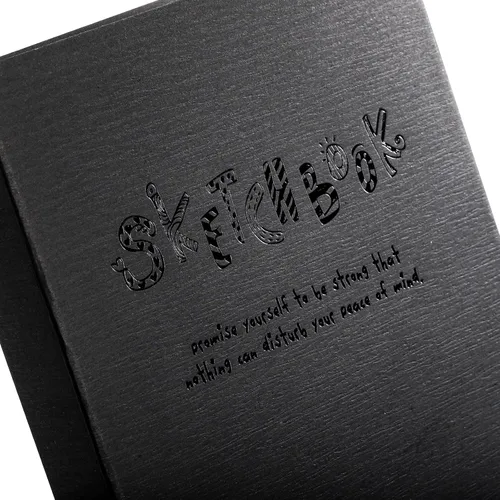 SKETCHBOOK
promise yourself to be strong that
nothing can disturb your peace of mind.